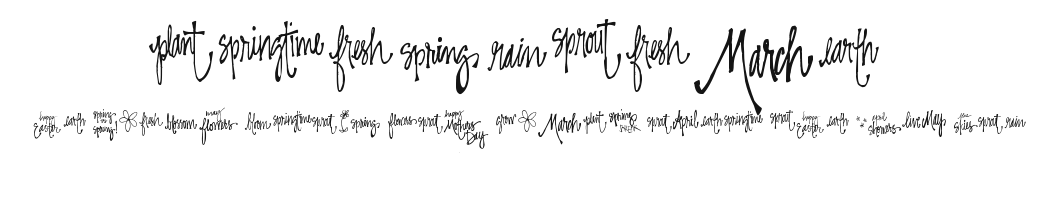 plant springtime fresh spring rain sprout fresh March earth
happy Easter earth spring spring! fresh blossom may flowers bloom springtime sprout spring flowers sprout happy Mother's Day grow March plant spring sprout April earth springtime sprout happy Easter earth april showers live May skies sprout rain